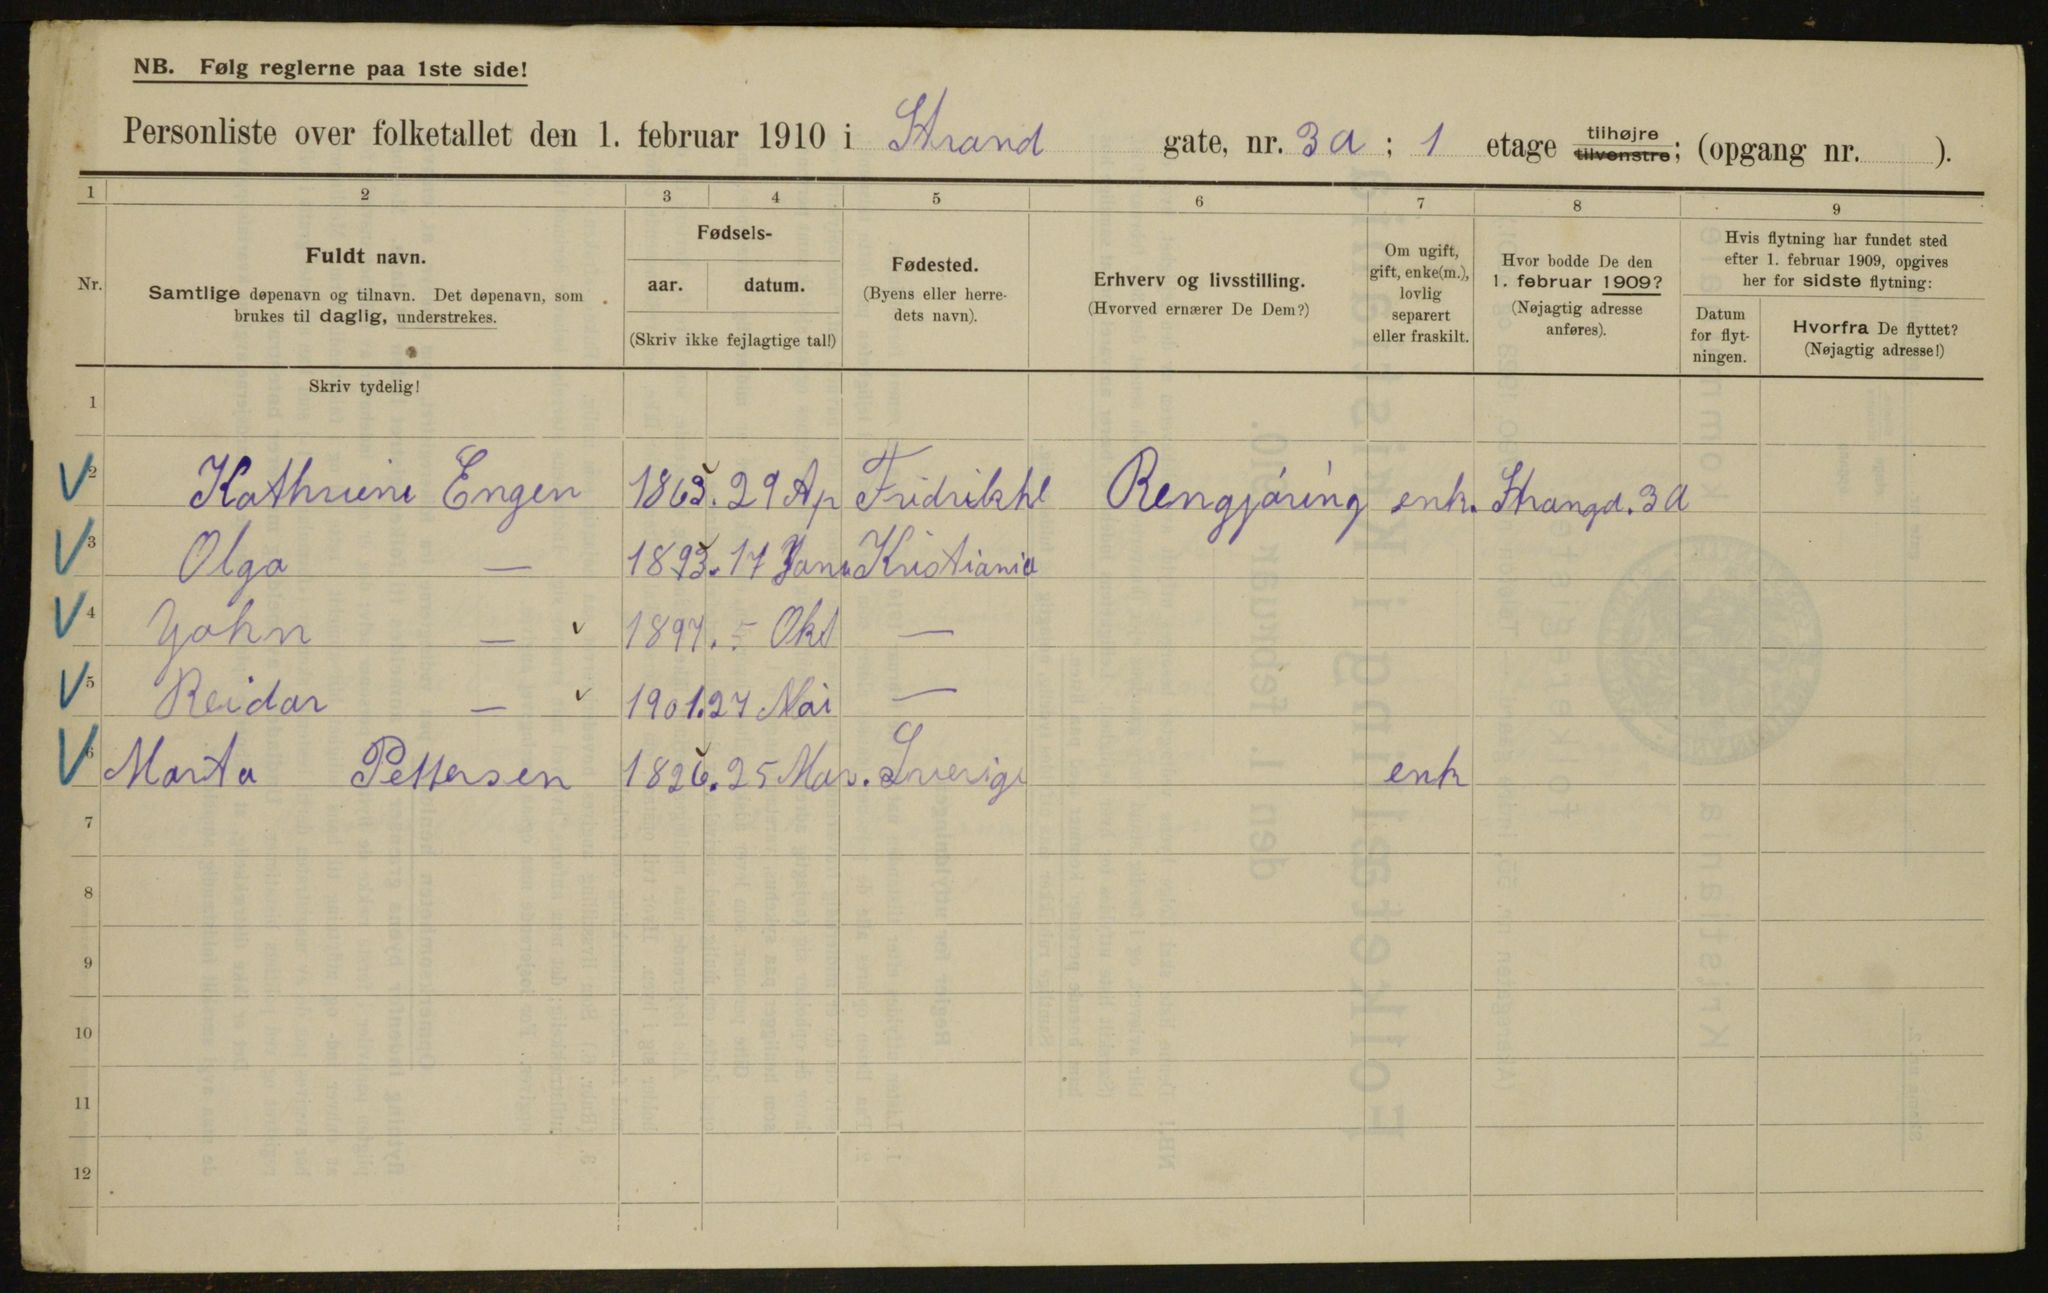 NB. Følg reglerne paa 1ste side!
Personliste over folketallet den 1. februar 1910 i Strand gate, nr. 3a ; 1 etage tilhøjre tilvenstre; (opgang nr. ).
1 2 3 4 5 6 7 8 9
Nr.
Fuldt navn.
Samtlige døpenavn og tilnavn. Det døpenavn, som
brukes til daglig, understrekes.
Skriv tydelig!
Fødsels-
aar. datum.
(Skriv ikke fejlagtige tal!)
Fødested.
(Byens eller herre-
dets navn).
Erhverv og livsstilling.
(Hvorved ernærer De Dem?)
Om ugift,
gift, enke(m.),
lovlig
separert
eller fraskilt.
Hvor bodde De den
1. februar 1909?
(Nøjagtig adresse
anføres).
Hvis flytning har fundet sted
efter 1. februar 1909, opgives
her for sidste flytning:
Datum
for flyt-
ningen.
Hvorfra De flyttet?
(Nøjagtig adresse!)
1
2 Kathrine Engen 1863. 29 Ap Fridrikhl Rengjøring enk. Strangd. 3a
3 Olga — 1893. 17 Janu Kristiania
4 John — 1897. 5 Okt —
5 Reidar — 1901. 27 Mai —
6 Marta Pettersen 1826. 25 Mar. Sverige enk
7
8
9
10
11
12